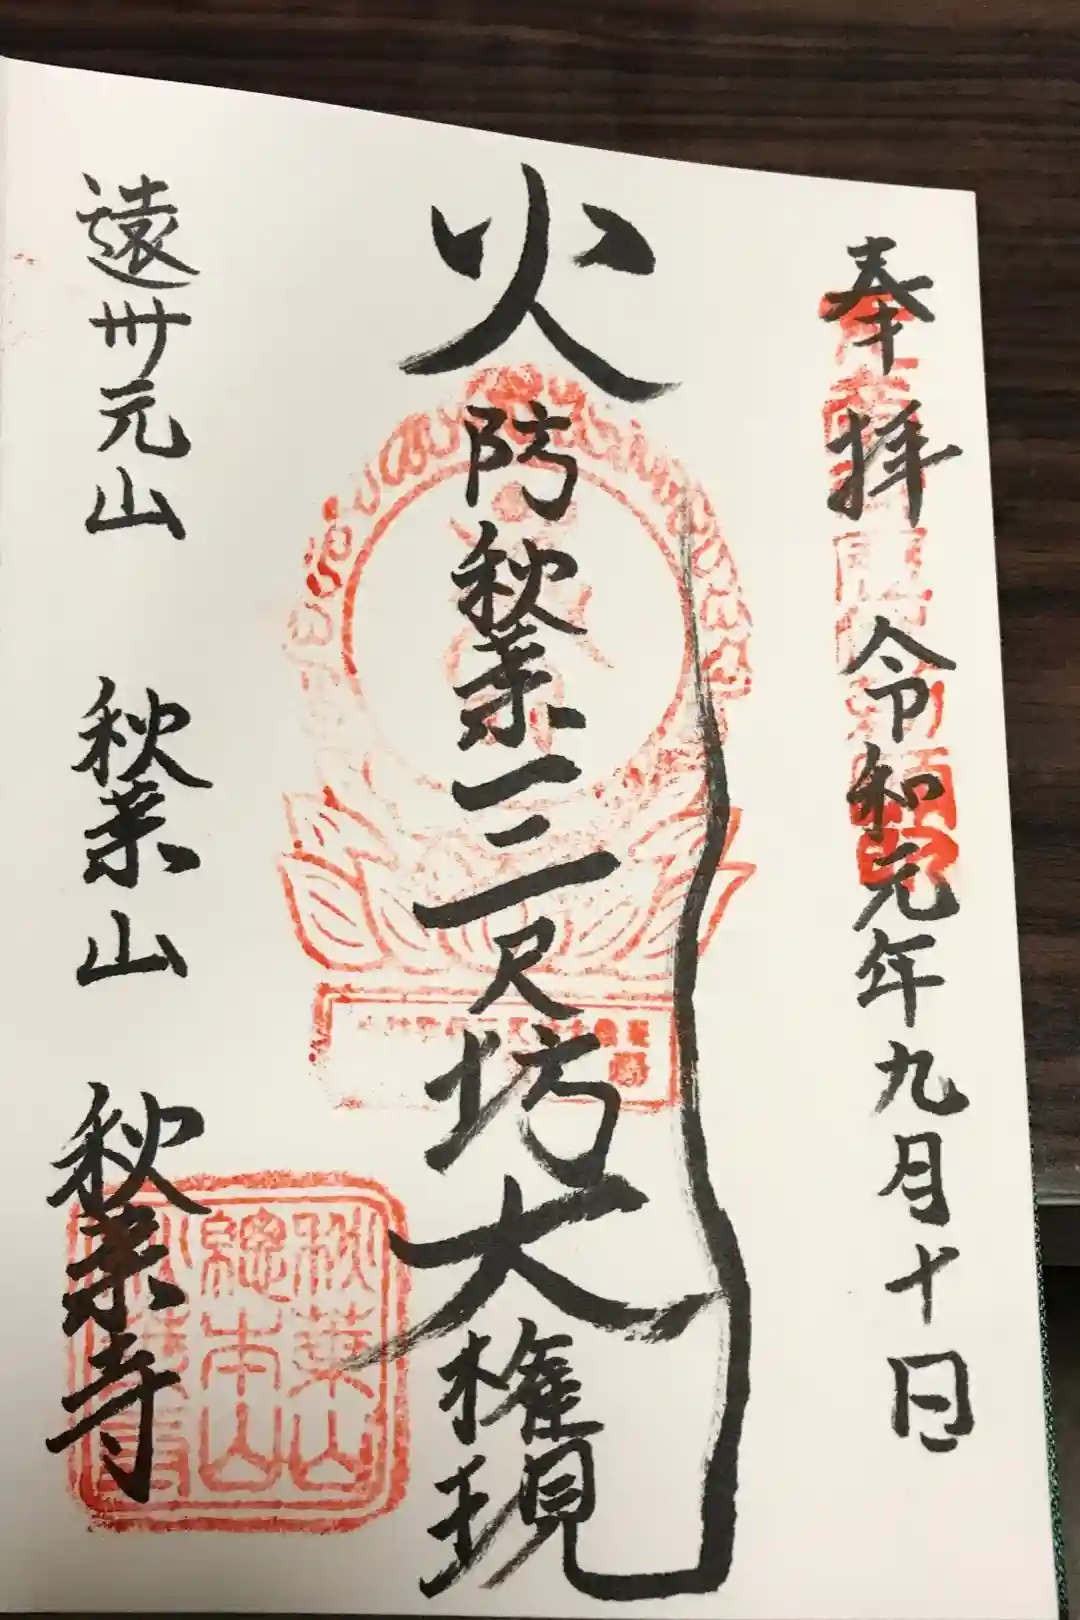 奉拝 令和元年九月十日
火防秋葉三尺坊大権現
遠州元山 秋葉山 秋葉寺
秋葉山
總本山